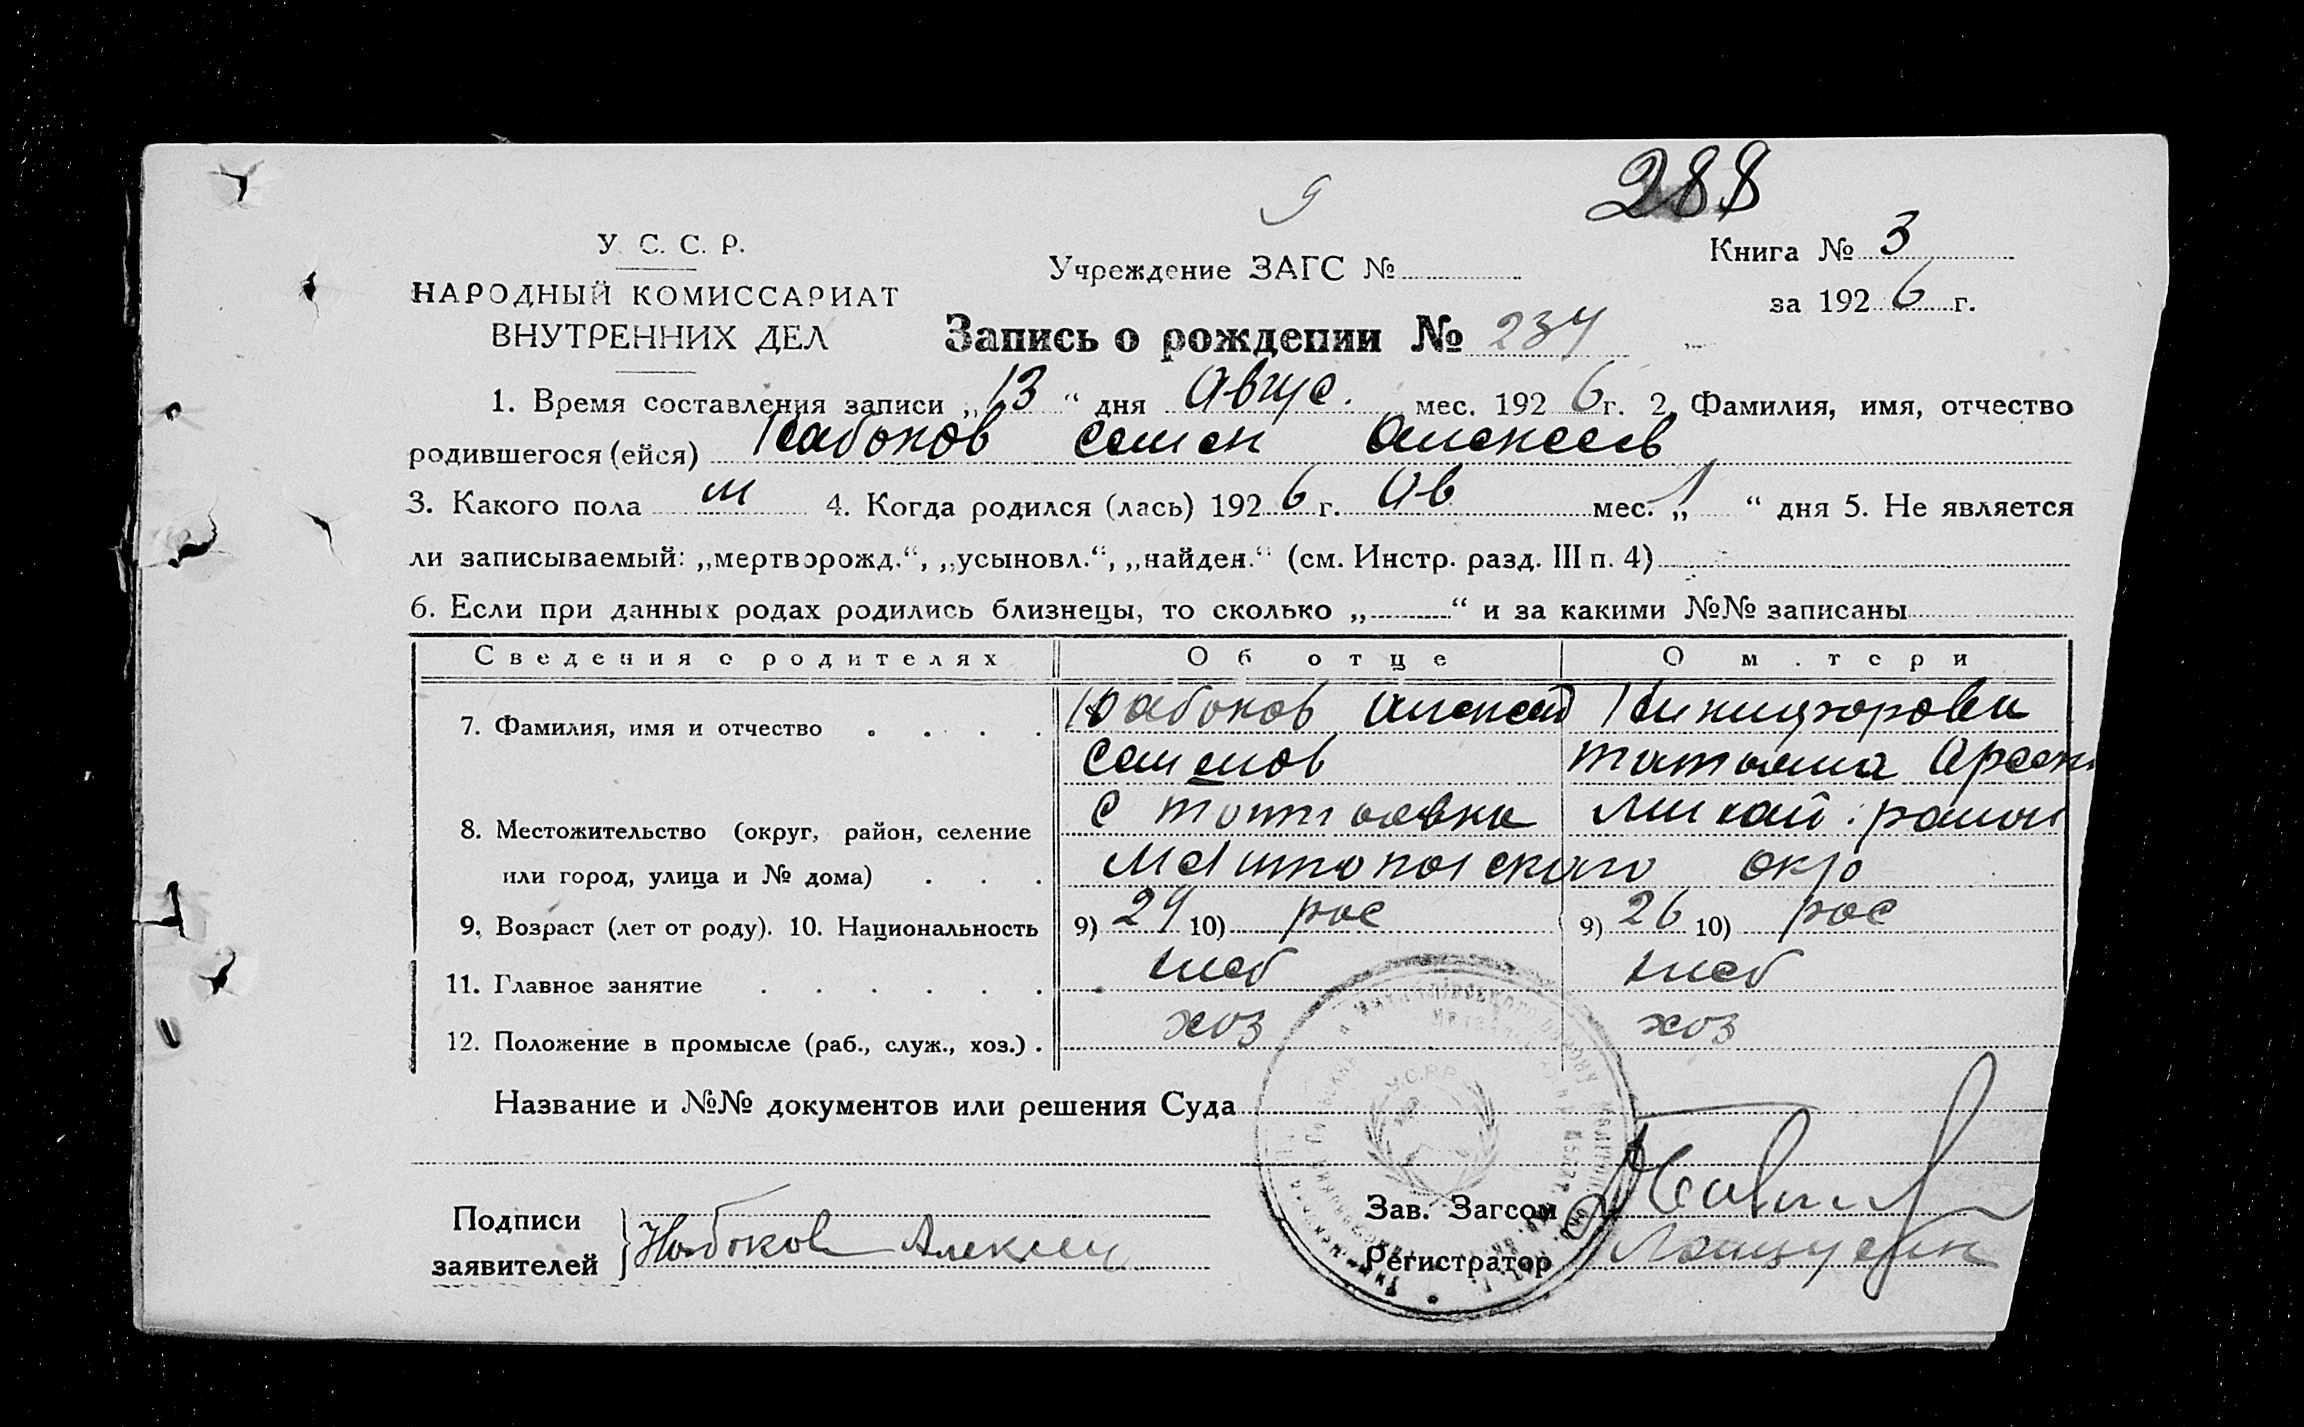 288
У. С. С. Р.
НАРОДНЫЙ КОМИССАРИАТ
ВНУТРЕННИХ ДЕЛ
Учреждение ЗАГС №
Книга № 3
за 1926 г.
Запись о рождении № 234
1. Время составления записи „13“ дня Авгус. мес. 1926 г. 2. Фамилия, имя, отчество
родившегося (ейся) Набоков Семен Алексеев
3. Какого пола м 4. Когда родился (лась) 1926 г. Ав мес. „1“ дня 5. Не является
ли записываемый: „мертворожд.“, „усыновл.“, „найден.“ (см. Инстр. разд. III п. 4)
6. Если при данных родах родились близнецы, то сколько „ “ и за какими №№ записаны
Сведения о родителях Об отце О матери
7. Фамилия, имя и отчество Набоков Алексей
Семенов Татьяна
8. Местожительство (округ, район, селение
или город, улица и № дома) Мелитопольского окр
9. Возраст (лет от роду). 10. Национальность 9) 29 10) рос 9) 26 10) рос
11. Главное занятие хлеб хлеб
12. Положение в промысле (раб., служ., хоз.) хоз хоз
Название и №№ документов или решения Суда
У.С.Р.Р.
Подписи
заявителей Набоков Алексей
Зав. Загсом
Регистратор